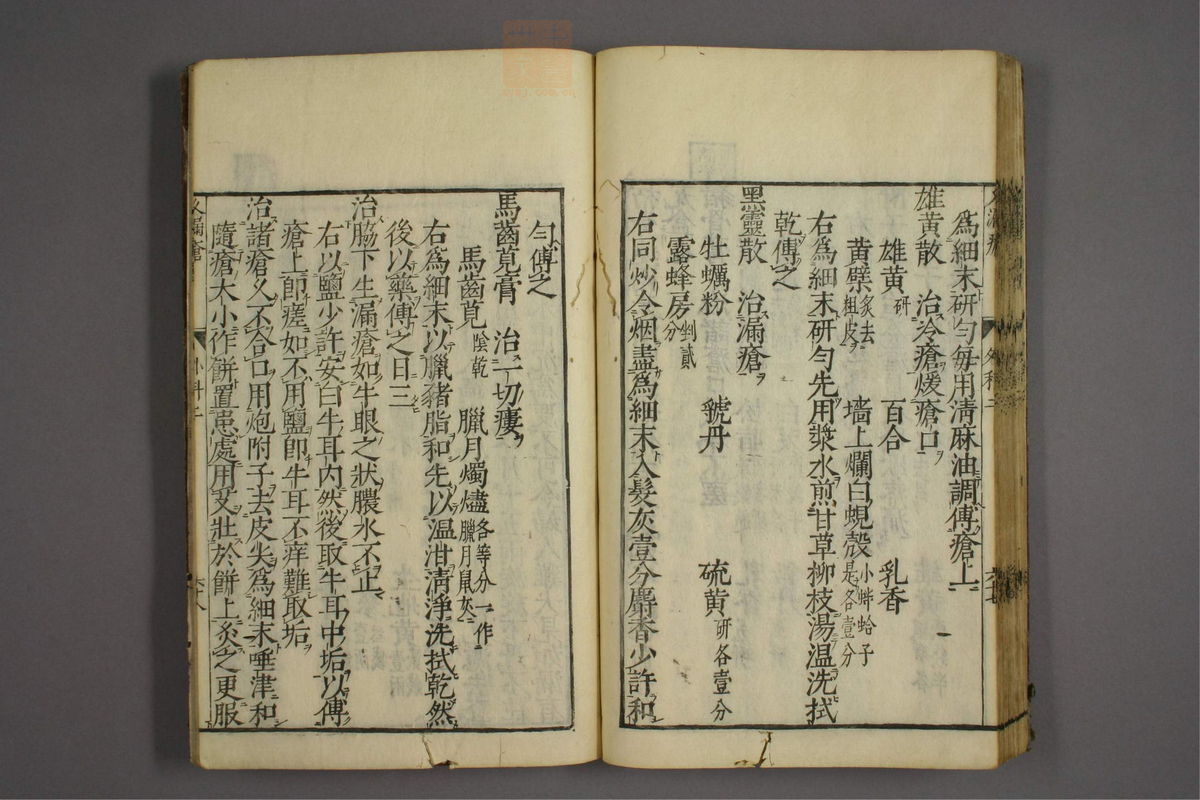 爲細末研勻每用淸麻油調傅瘡上
雄黃散　治冷瘡煖瘡口
雄黃研　百合　乳香
黃檗炙去粗皮　墻上爛白蜆殼小蚌蛤子是各壹分
右爲細末研勻先用漿水煎甘草柳枝湯温洗拭
乾傅之
黑靈散　治漏瘡
牡蠣粉　虢丹　硫黃研各壹分
露蜂房剉貳分
右同炒令烟盡爲細末入髮灰壹分麝香少許和
勻傅之
馬齒莧膏　治一切瘻
馬齒莧陰乾　臘月燭燼各等分一作臘月鼠灰
右爲細末以臘豬脂和先以温泔淸淨洗拭乾然
後以藥傅之日三
治脇下生漏瘡如牛眼之狀膿水不止
右以鹽少許安白牛耳內然後取牛耳中垢以傅
瘡上卽瘥如不用鹽卽牛耳不痒難取垢
治諸瘡久不合口用炮附子去皮尖爲細末唾津和
隨瘡大小作餠置患處用艾壯於餠上灸之更服
久漏瘡
外科二